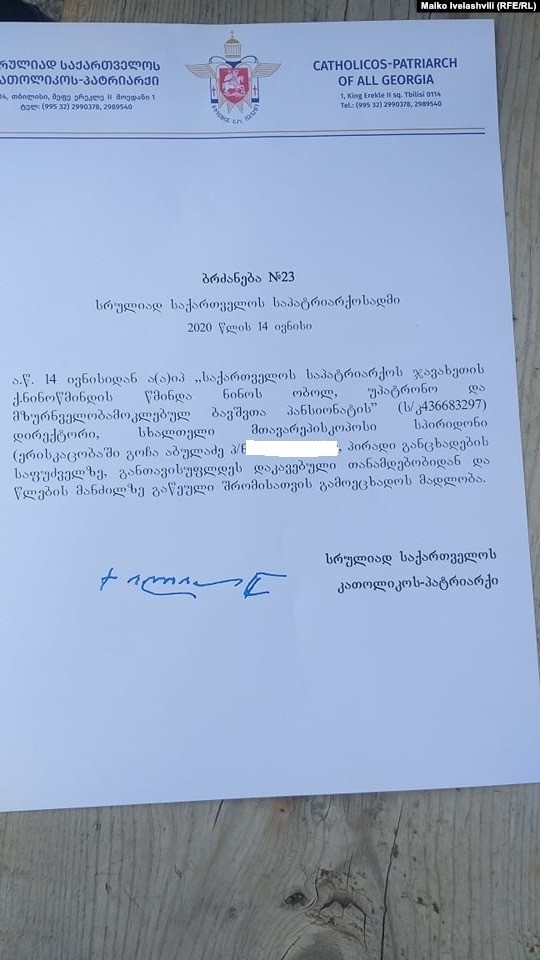 Maiko Ivelashvili (RFE/RL)
რულიად საქართველოს
ათოლიკოს-პატრიარქი
14, თბილისი, მეფე ერეკლე II მოედანი 1
ტელ: (995 32) 2990378, 2989540
CATHOLICOS-PATRIARCH
OF ALL GEORGIA
1, King Erekle II sq. Tbilisi 0114
Tel.: (995 32) 2990378, 2989540
ბრძანება №23
სრულიად საქართველოს საპატრიარქოსადმი
2020 წლის 14 ივნისი
ა.წ. 14 ივნისიდან ა(ა)იპ „საქართველოს საპატრიარქოს ჯავახეთის
ქ.ნინოწმინდის წმინდა ნინოს ობოლ, უპატრონო და
მზურნველობამოკლებულ ბავშვთა პანსიონატის” (ს/კ436683297)
დირექტორი, სხალთელი მთავარეპისკოპოსი სპირიდონი
(ერისკაცობაში გოჩა აბულაძე პ/ნ , პირადი განცხადების
საფუძველზე, განთავისუფლდეს დაკავებული თანამდებობიდან და
წლების მანძილზე გაწეული შრომისათვის გამოეცხადოს მადლობა.
სრულიად საქართველოს
კათოლიკოს-პატრიარქი